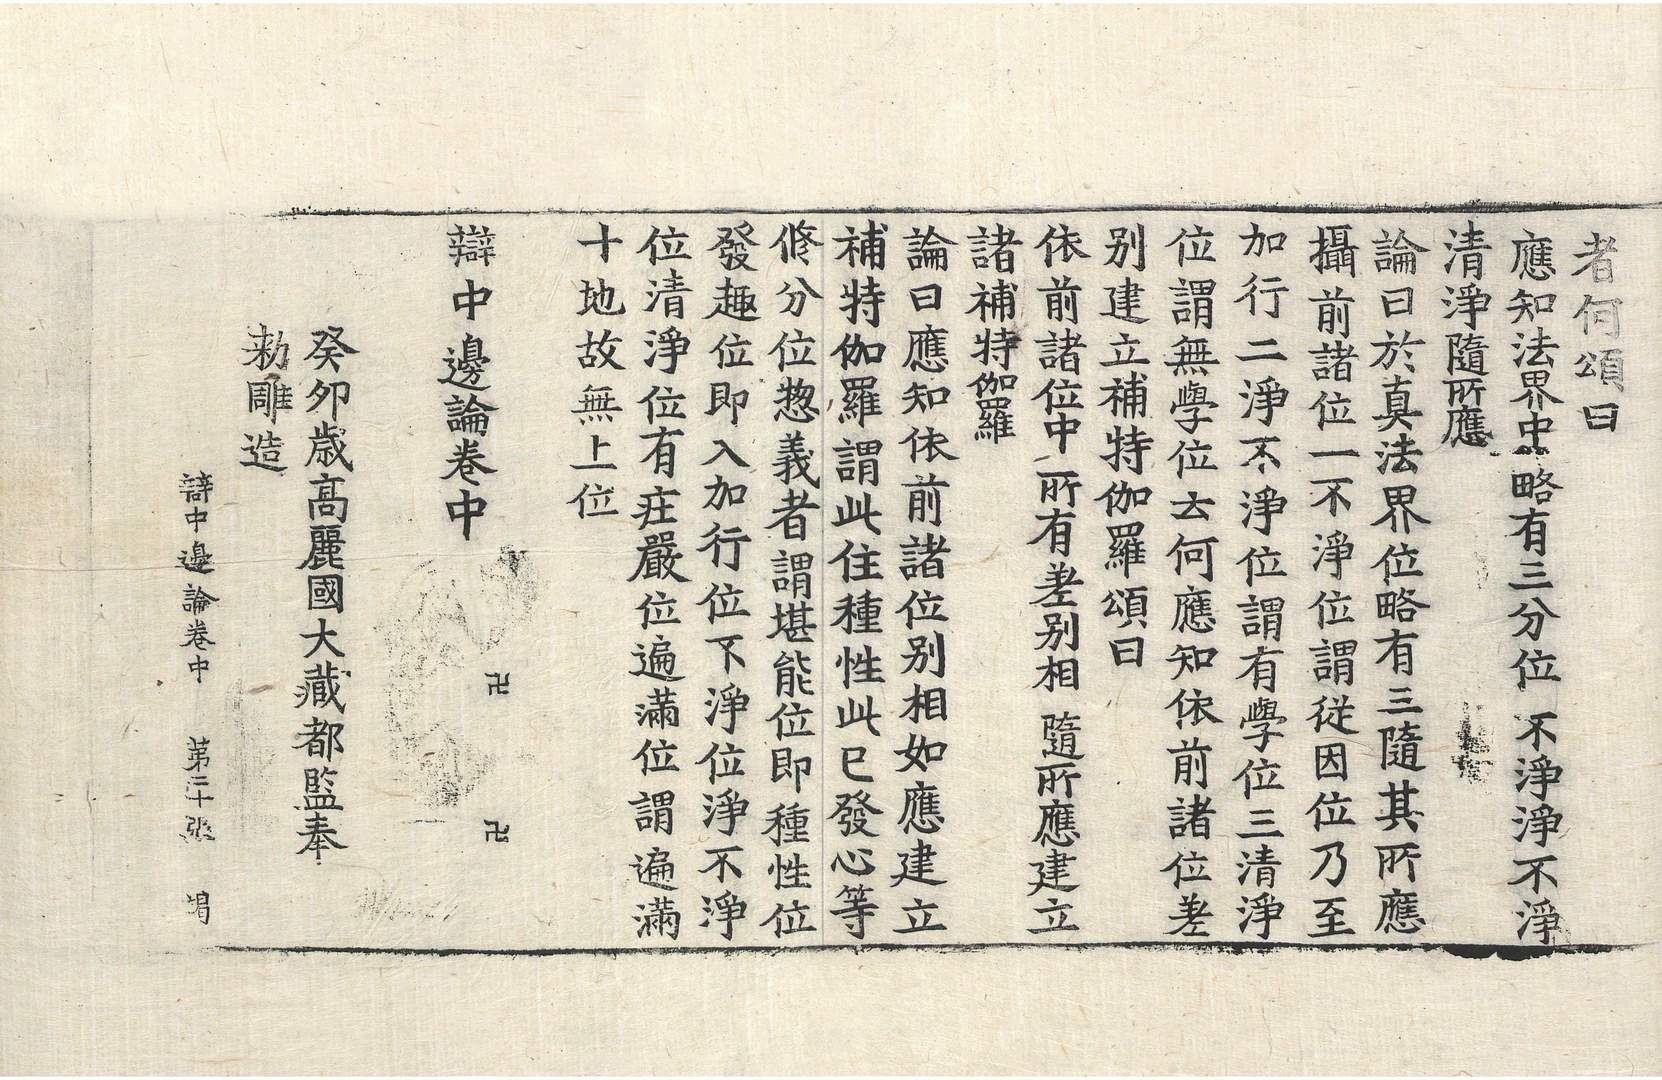 者何頌曰
應知法界中 略有三分位 不淨淨不淨
清淨隨所應
論曰於真法界位略有三隨其所應
攝前諸位一不淨位謂從因位乃至
加行二淨不淨位謂有學位三清淨
位謂無學位云何應知依前諸位差
别建立補特伽羅頌曰
依前諸位中 所有差别相 隨所應建立
諸補特伽羅
論曰應知依前諸位别相如應建立
補特伽羅謂此住種性此已發心等
修分位惣義者謂堪能位即種性位
發趣位即入加行位不淨位淨不淨
位清淨位有庄嚴位遍滿位謂遍滿
十地故無上位
辯中邊論卷中
卍 卍
癸卯歲高麗國大藏都監奉
勑雕造
辯中邊論卷中 第二十張